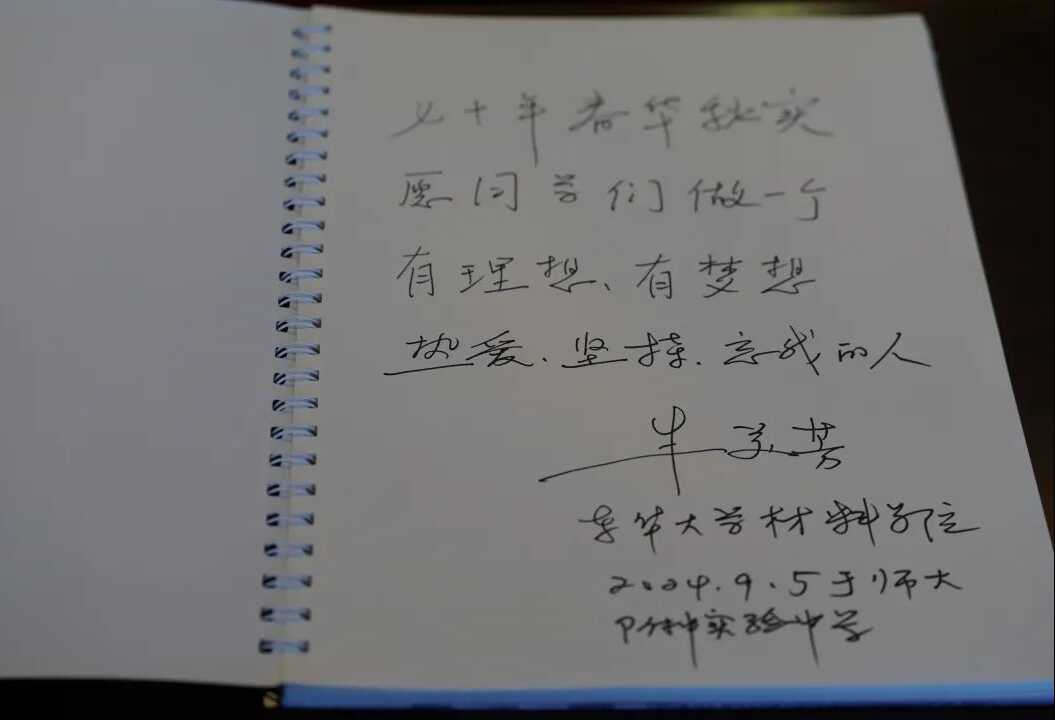 七十年春华秋实
愿同学们做一个
有理想、有梦想
热爱、坚持、忘我的人
朱美芳
东华大学材料学院
2024.9.5于师大
实验中学